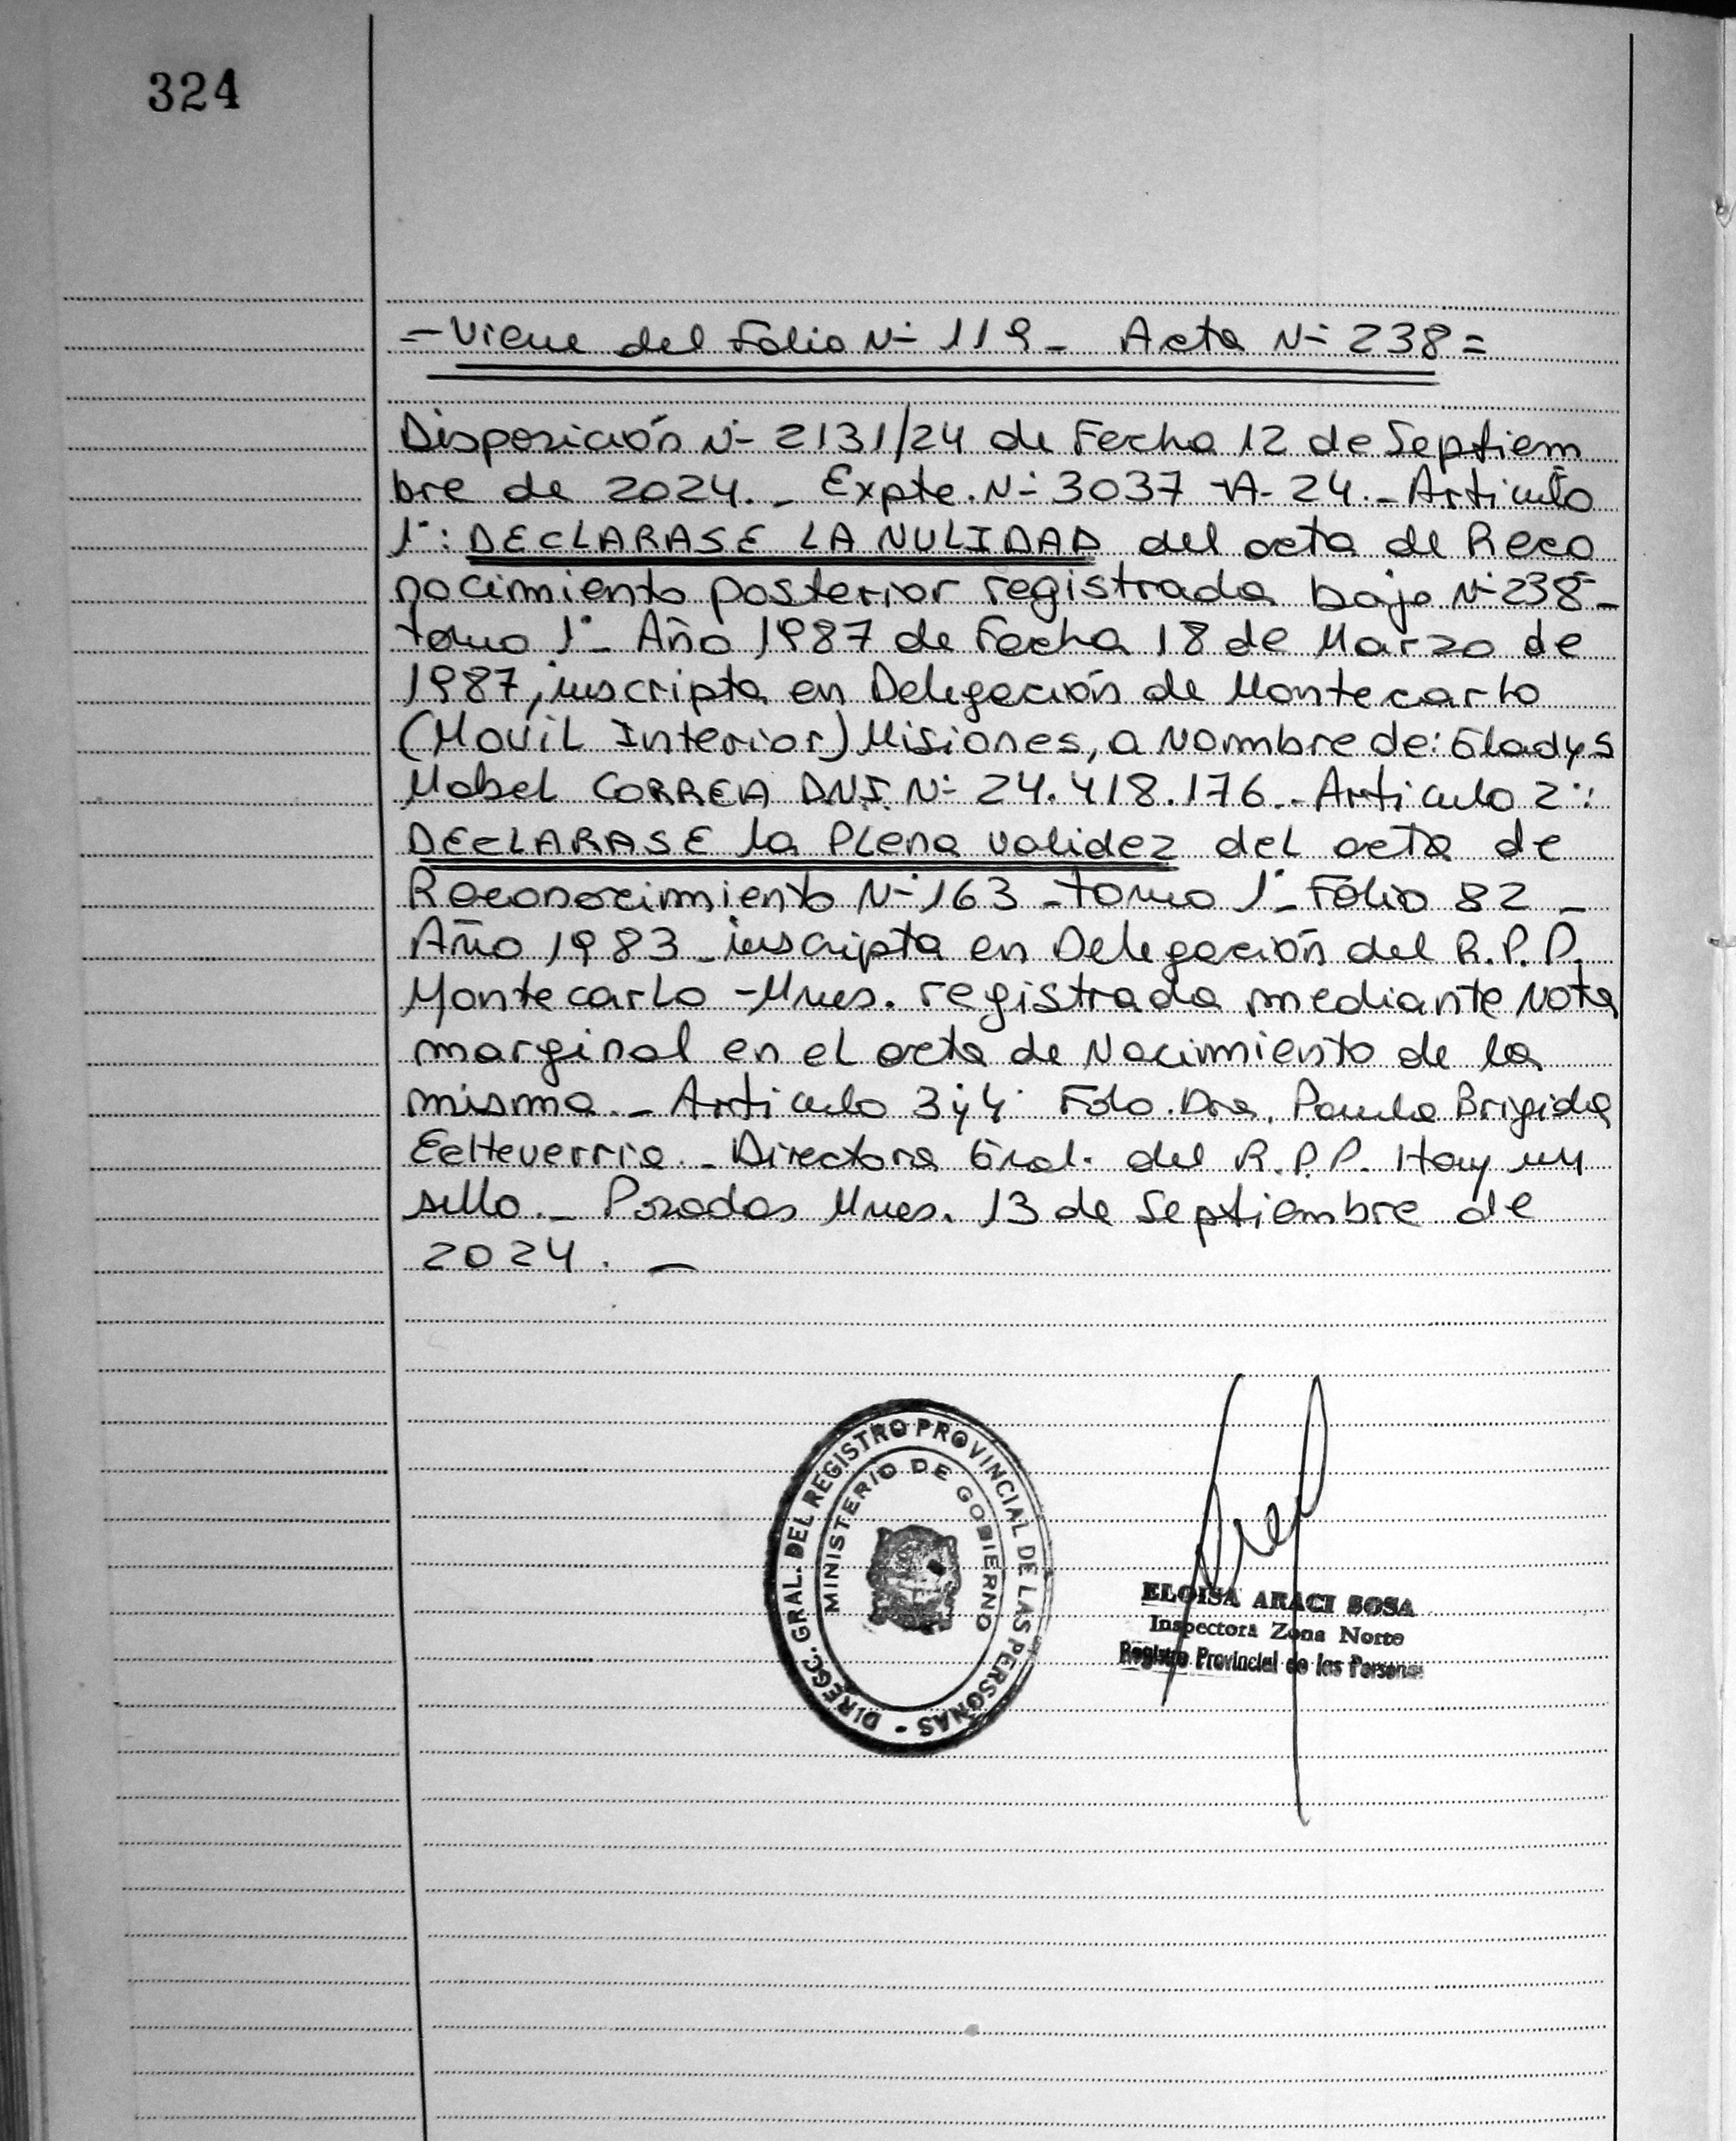 324
- Viene del Folio N° 119 - Acta N° 238 =
Disposición N° 2131/24 de Fecha 12 de Septiem
bre de 2024. - Expte. N° 3037 -A- 24. - Articulo
1°: DECLARASE LA NULIDAD del acta de Reco
nocimiento posterior registrada bajo N° 238 -
tomo 1° - Año 1987 de Fecha 18 de Marzo de
1987, inscripta en Delegación de Montecarlo
(Movil Interior) Misiones, a Nombre de: Gladys
Mabel CORREA DNI. N° 24.418.176. - Articulo 2°:
DECLARASE la Plena validez del acta de
Reconocimiento N° 163 - tomo 1° - Folio 82 -
Año 1983 - inscripta en Delegación del R.P.P.
Montecarlo - Mnes. registrada mediante Nota
marginal en el acta de Nacimiento de la
misma. - Articulo 3 y 4 Fdo. Dra. Paula Brigida
Echeverria. - Directora Gral. del R.P.P. Hay un
sello. - Posadas Mnes. 13 de Septiembre de
2024. -
DIRECC. GRAL. DEL REGISTRO PROVINCIAL DE LAS PERSONAS -
MINISTERIO DE GOBIERNO
ELOISA ARACI SOSA
Inspectora Zona Norte
Registro Provincial de las Personas